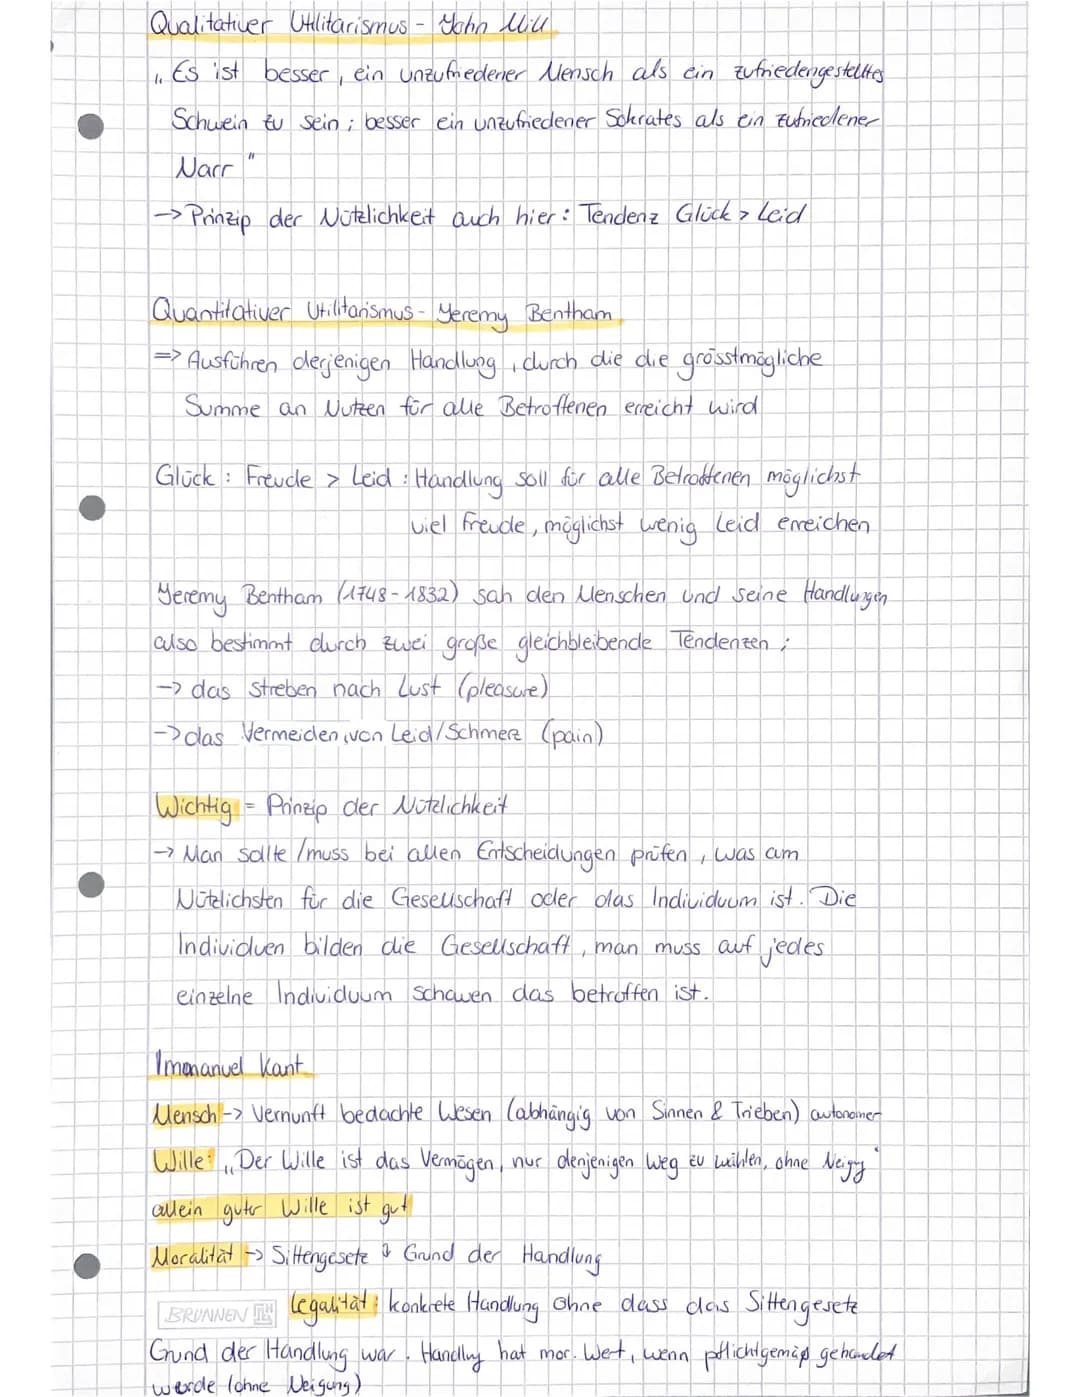 Qualitativer Utilitarismus - John Mill
„Es ist besser, ein unzufriedener Mensch als ein zufriedengestelltes
Schwein zu sein; besser ein unzufriedener Sokrates als ein zufriedener
Narr"
-> Prinzip der Nützlichkeit auch hier: Tendenz Glück > Leid
Quantitativer Utilitarismus - Jeremy Bentham
=> Ausführen derjenigen Handlung, durch die die grösstmögliche
Summe an Nutzen für alle Betroffenen erreicht wird
Glück: Freude > Leid: Handlung soll für alle Betroffenen möglichst
viel Freude, möglichst wenig Leid erreichen
Jeremy Bentham (1748-1832) sah den Menschen und seine Handlungen
also bestimmt durch zwei große gleichbleibende Tendenzen;
-> das Streben nach Lust (pleasure)
-> das Vermeiden von Leid/Schmerz (pain)
Wichtig = Prinzip der Nützlichkeit
-> Man sollte/muss bei allen Entscheidungen prüfen, was am
Nützlichsten für die Gesellschaft oder das Individuum ist. Die
Individuen bilden die Gesellschaft, man muss auf jedes
einzelne Individuum schauen das betroffen ist.
Immanuel Kant
Mensch -> Vernunft bedachte Wesen (abhängig von Sinnen & Trieben) autonomer
Wille: „Der Wille ist das Vermögen, nur denjenigen Weg zu wählen, ohne Neigg"
allein guter Wille ist gut
Moralität -> Sittengesetz Grund der Handlung
BRUNNEN Legalität: konkrete Handlung ohne dass das Sittengesetz
Grund der Handlung war. Handlg hat mor. Wert, wenn pflichtgemäß gehandelt
werde (ohne Neigung)